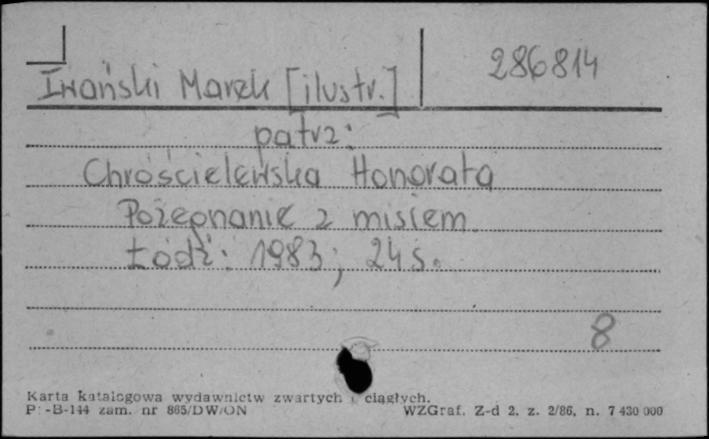 Iwański Marek [ilustr.] 286814
patrz:
Chróścielewska Honorata
Pożegnanie z misiem.
Łódź: 1983; 24 s.
8
Karta katalogowa wydawnictw zwartych i ciągłych.
P-B-144 zam. nr 865/DW/ON WZGraf. Z-d 2, z. 2/86, n. 7 430 000